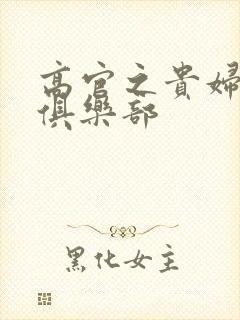 高官之貴婦
俱樂部
黑化女主